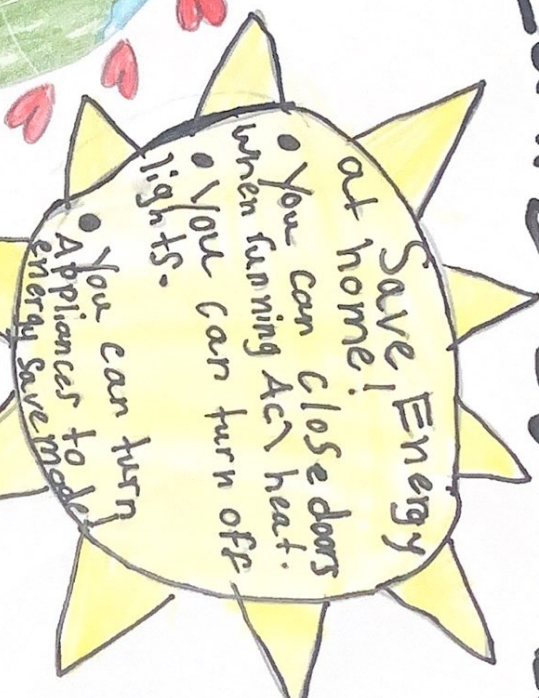 Save Energy
at home!
• You can close doors
when running AC\ heat.
• You can turn off
lights.
• You can turn
Appliances to
energy save mode!